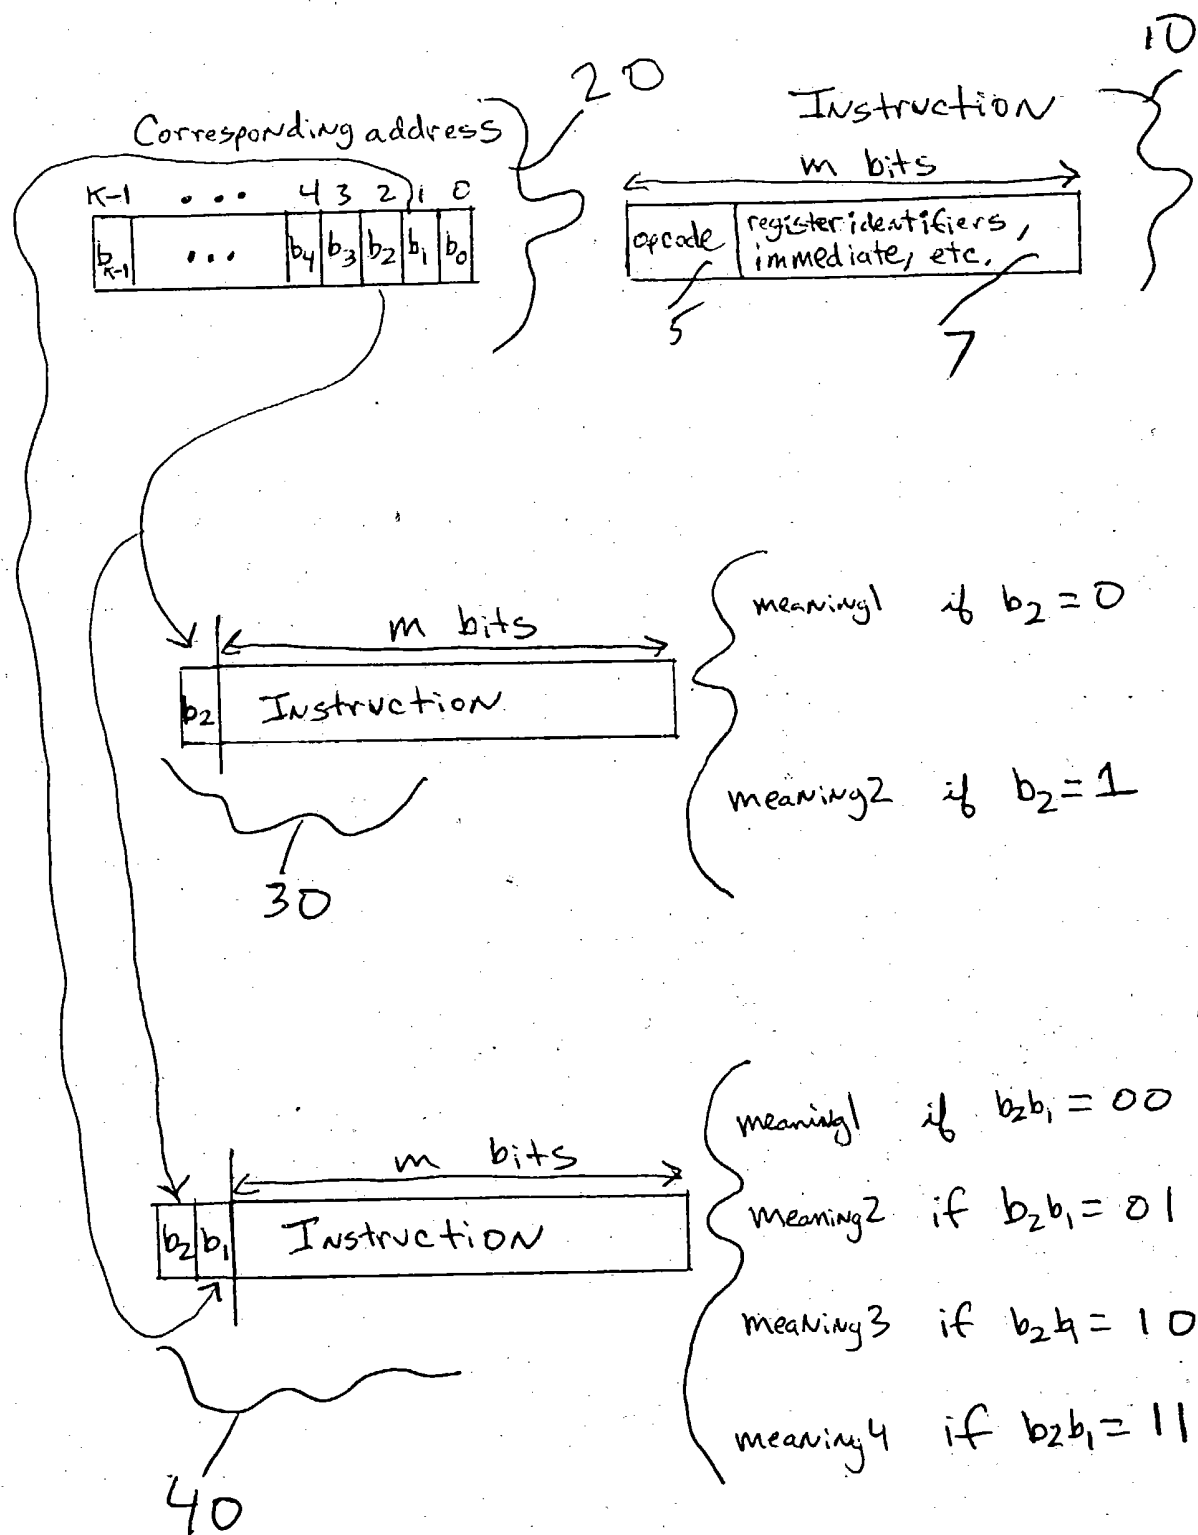 10
20
Instruction
Corresponding address
m bits
K-1 ... 4 3 2 1 0
b_{K-1} ... b4 b3 b2 b1 b0
opcode
register identifiers,
immediate, etc.
5
7
m bits
b2 Instruction
meaning1 if b2 = 0
meaning2 if b2 = 1
30
m bits
b2 b1 Instruction
meaning1 if b2b1 = 00
meaning2 if b2b1 = 01
meaning3 if b2b1 = 10
meaning4 if b2b1 = 11
40